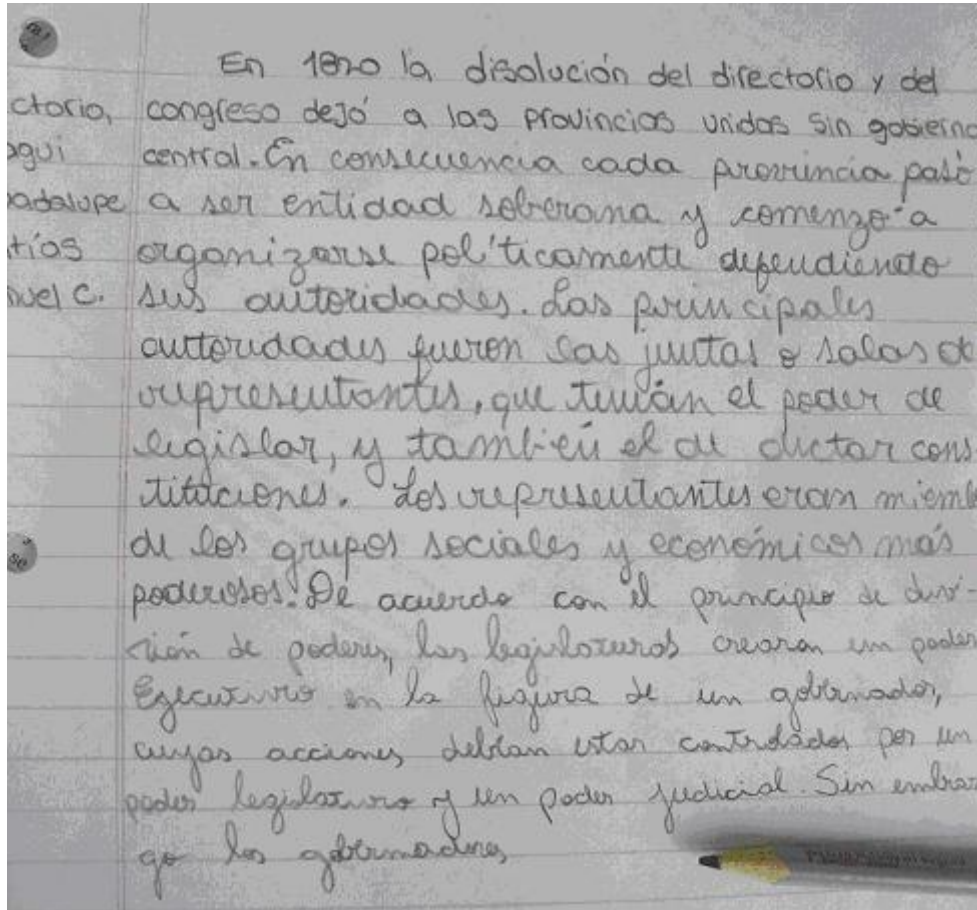 En 1820 la disolución del directorio y del
ctorio, congreso dejó a las provincias unidas sin gobierno
ogui central. En consecuencia cada provincia pasó
adalupe a ser entidad soberana y comenzó a
tíos organizarse políticamente defendiendo
nuel C. sus autoridades. Las principales
autoridades fueron las juntas o salas de
representantes, que tenían el poder de
legislar, y también el de dictar cons
titituciones. Los representantes eran miemb
de los grupos sociales y económicos más
poderosos. De acuerdo con el principio de divi-
sión de poderes, las legislaturas crearon un poder
Egecutivo en la figura de un gobernador,
cuyas acciones debían estar controladas por un
poder legislativo y un poder judicial. Sin embar
go los gobernadores,